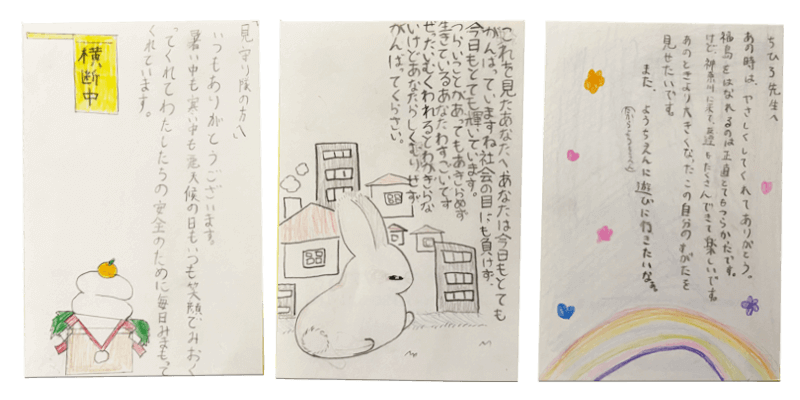 見守り隊の方へ
いつもありがとうございます。
暑い中も寒い中も悪天候の日もいつも笑顔でみおく
ってくれてわたしたちの安全のために毎日みまもって
くれています。
横断中
これを見たあなたへあなたは今日もとても
がんばっていますね社会の目にも負けず、
今日もとても輝いています。
つらいことがあってもあきらめず
生きているあなたわすごいです
ぜったいむくわれるとわかぎらな
いけどあなたらしくむりせず
がんばってください。
ちひろ先生へ
あの時は、やさしくしてくれてありがとう。
福島をはなれるのは正直とてもつらかったです。
けど、神奈川に来て友達もたくさんできて楽しいです。
あのときより大きくなったこの自分のすがたを
見せたいです。
また、ようちえんに遊びに行きたいなぁ